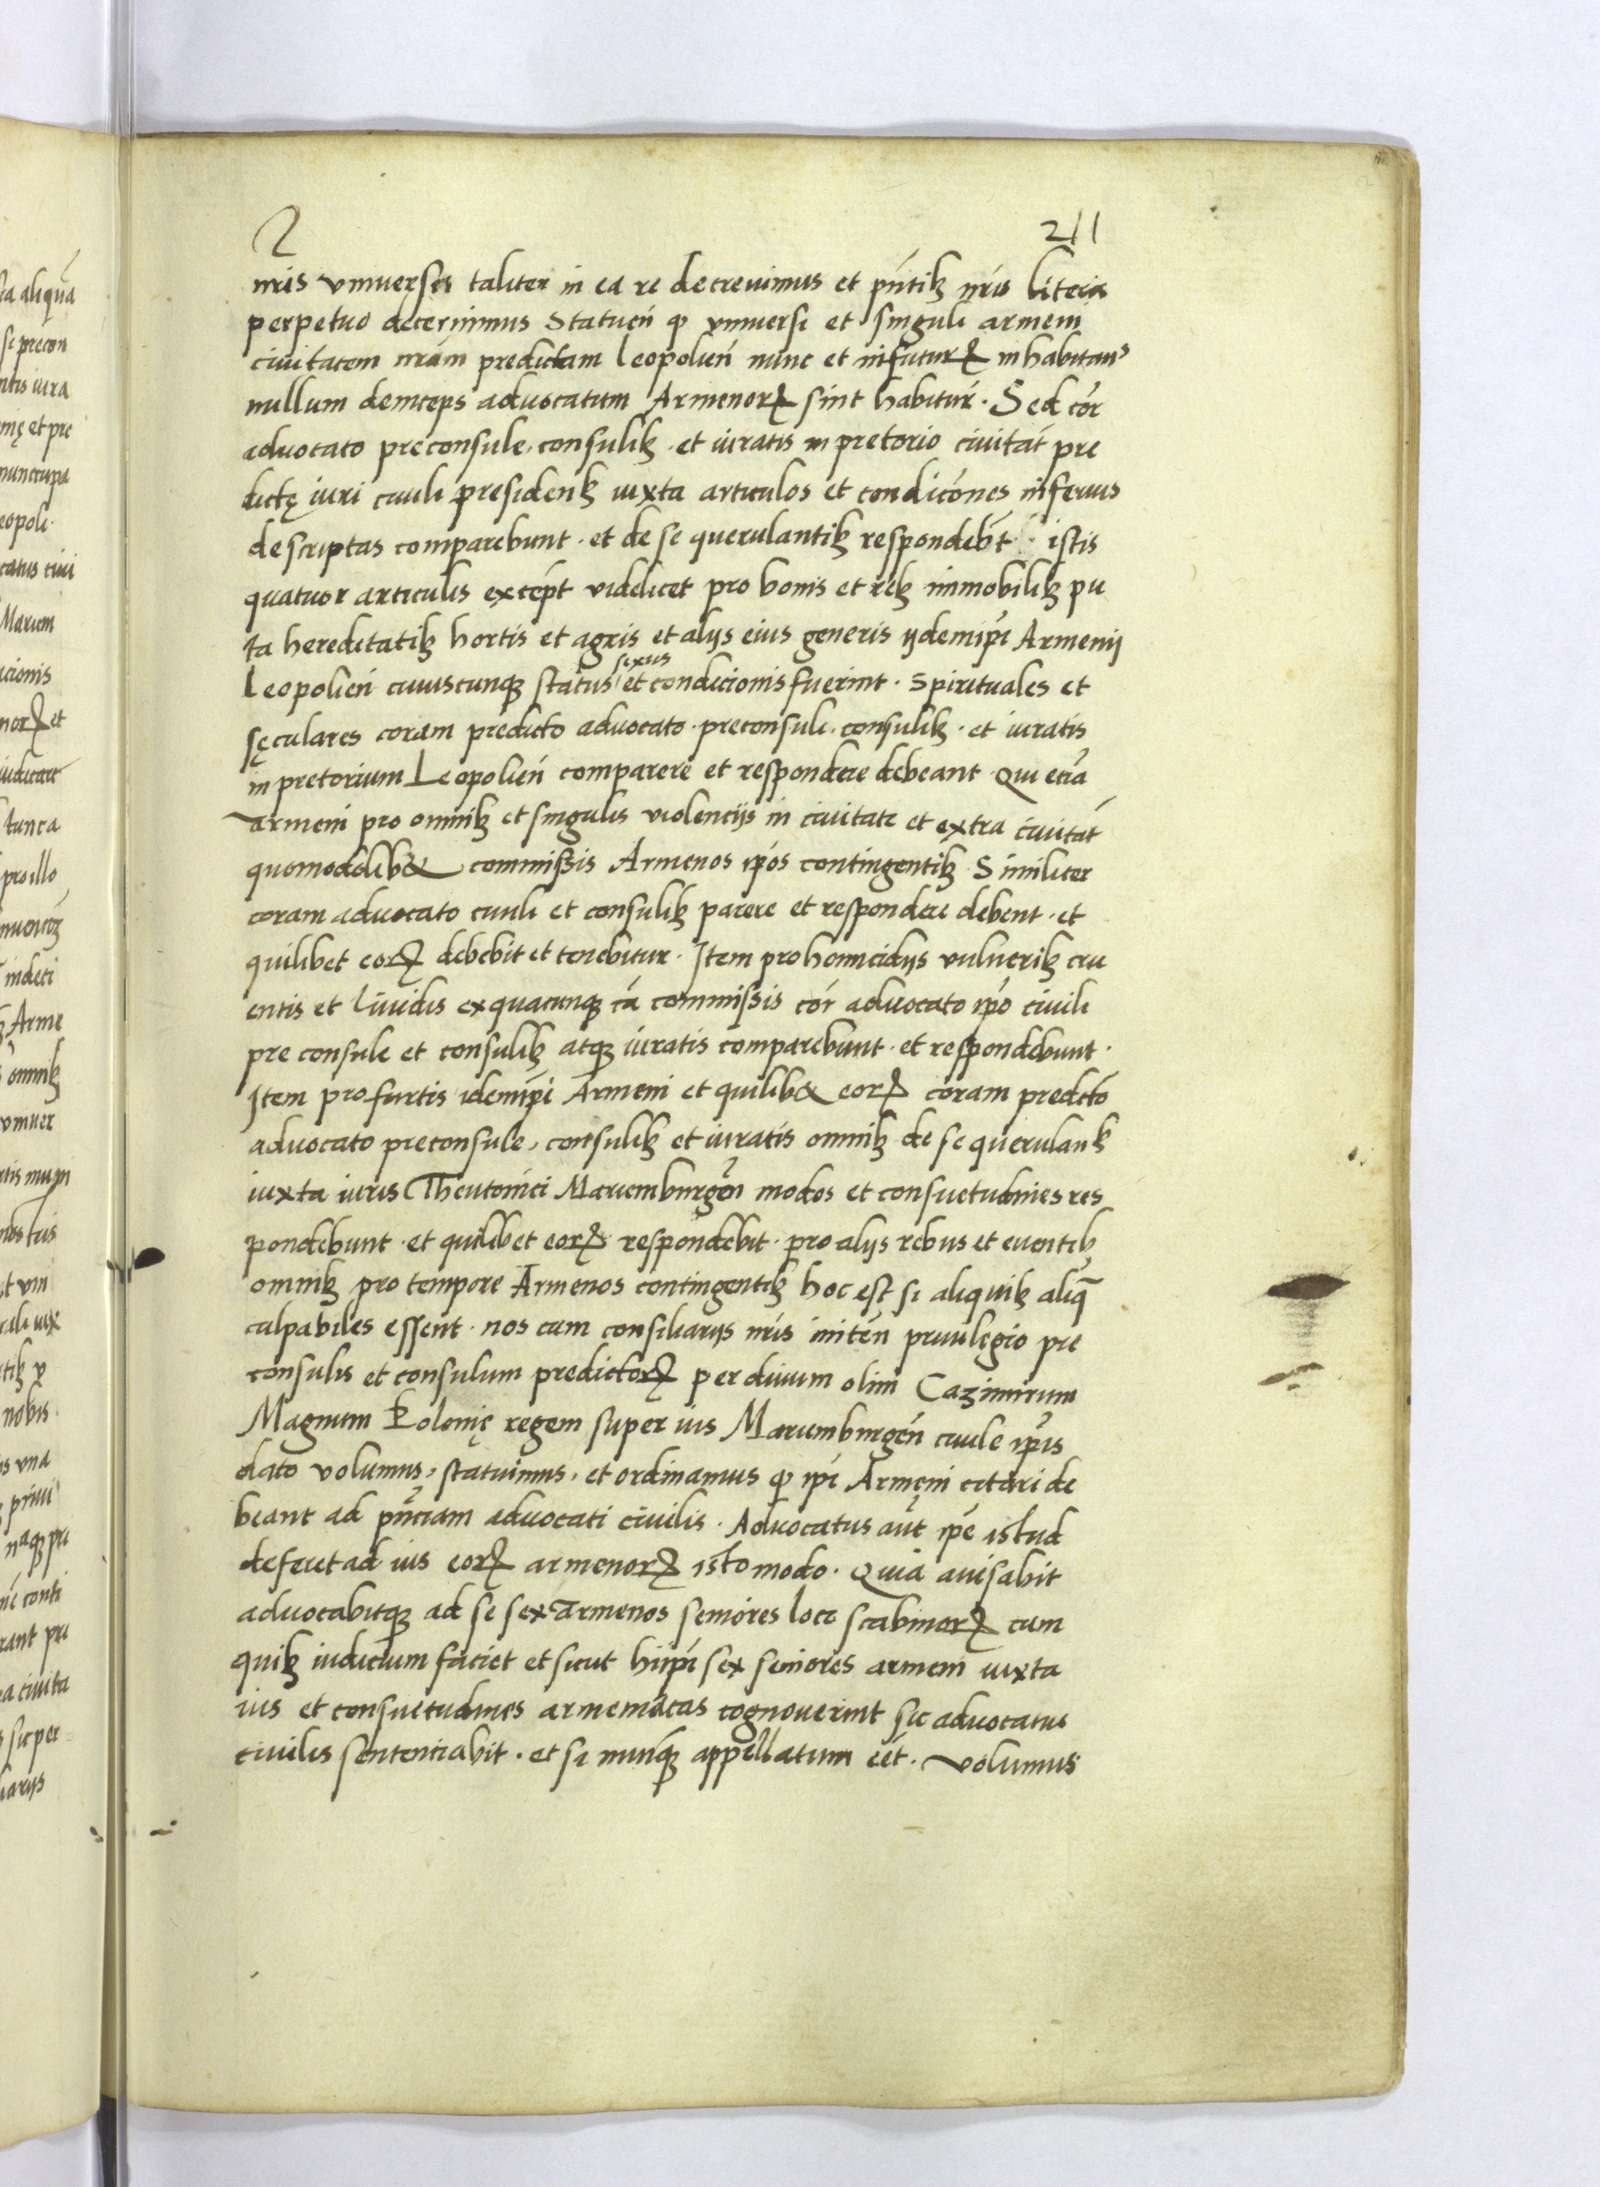 2 211
nris vniuersis taliter in ea re decreuimus et pñtibꝫ nris literis
perpetuo decernimus Statueñ ꝙ vniuersi et singuli armeni
ciuitatem nram predictam leopolieñ nunc et infuturꝝ inhabitans
nullum deinceps aduocatum Armenorꝝ sint habitur. Sed cor
aduocato preconsule, consulibꝫ. et iuratis in pretorio ciuitat pre
dictę iuri ciuili presidenbꝫ iuxta articulos et condicones inferius
descriptas comparebunt. et de se querulantibꝫ respondebt istis
quatuor articulis except videlicet pro bonis et rebꝫ immobilibꝫ pu
ta hereditatibꝫ hortis et agris et alijs eius generis ijdemipi Armenij
Leopolieñ cuiuscunqꝫ status sexus et condicionis fuerint. Spirituales et
sęculares coram predicto aduocato. preconsuli. consulibꝫ. et iuratis
in pretorium Leopolieñ comparere et respondere debeant Qui ecia
armeni pro omnibꝫ et singulis violencijs in ciuitate et extra ciuitat
quomodolibꝫ commissis Armenos ipos contingentibꝫ Similiter
coram aduocato ciuili et consulibꝫ parere et respondere debent. et
quilibet eorꝝ debebit et tenebitur. Item pro homicidijs vulneribꝫ cru
entis et liuidis ex quacunqꝫ ca commissis cor aduocato ipo ciuili
pre consule et consulibꝫ atqꝫ iuratis comparebunt. et respondebunt.
Item pro furtis idemipi Armeni et quilibꝫ eorꝝ coram predicto
aduocato preconsule, consulibꝫ et iuratis omnibꝫ de se querulanbꝫ
iuxta iuris Theutonici Mariemburgeñ modos et consuetudines res
pondebunt. et quilibet eorꝝ respondebit. pro alijs rebus et euentibꝫ
omnibꝫ pro tempore Armenos contingentibꝫ hoc est si aliquibꝫ aliqͣ
culpabiles essent. nos cum consiliarijs nris initen priuilegio pre
consulis et consulum predictorꝝ per diuum olim Cazimirum
Magnum Polonię regem super ius Mariemburgeñ ciuile ipis
dato volumus, statuimus, et ordinamus ꝙ ipi Armeni citari de
beant ad pñciam aduocati ciuilis. Aduocatus aut ipe istud
deferet ad ius eorꝝ armenorꝝ isto modo. Quia auisabit
aduocabitqꝫ ad se sex Armenos seniores loco scabinorꝝ cum
quibꝫ iudicium faciet et sicut hijpi sex seniores armeni iuxta
ius et consuetudines armenicas cognouerint sic aduocatus
ciuilis sententiabit. et si nunqꝫ appellatum eet. volumus